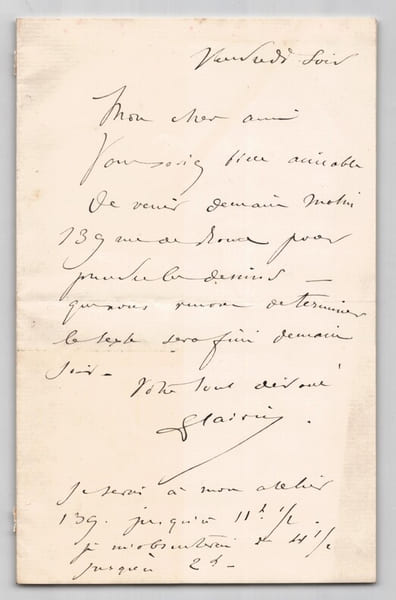 Vendredi soir
Mon cher ami
Vous seriez bien aimable
de venir demain matin
139 rue de Rome pour
prendre les dessins —
que nous venons de terminer
le texte sera fini demain
soir —
Votre tout dévoué
Clairin
Je serai à mon atelier
139. jusqu'à 11h 1/2.
je m'absenterai de 11 1/2
jusqu'à 2h —